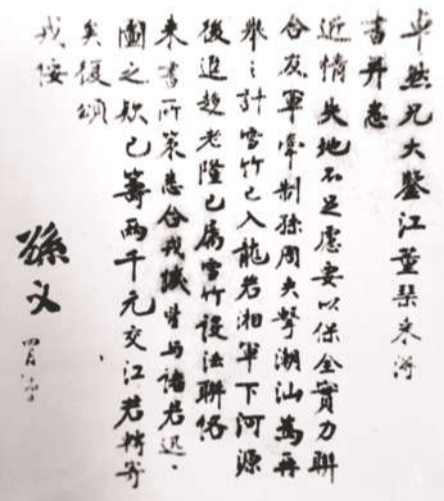 卓然兄大鑒江董琴来得
書并悉
近情失地不足慮要以保全實力聯
合友軍牽制孫周夾擊潮汕為再
舉之計雪竹已入龍岩湘軍下河源
後進趨老隆已屬雪竹設法聯絡
来書所策悉合戎機望与諸君迅
圖之欵已籌兩千元交江君轉寄
矣復頌
戎绥
孫文
四月